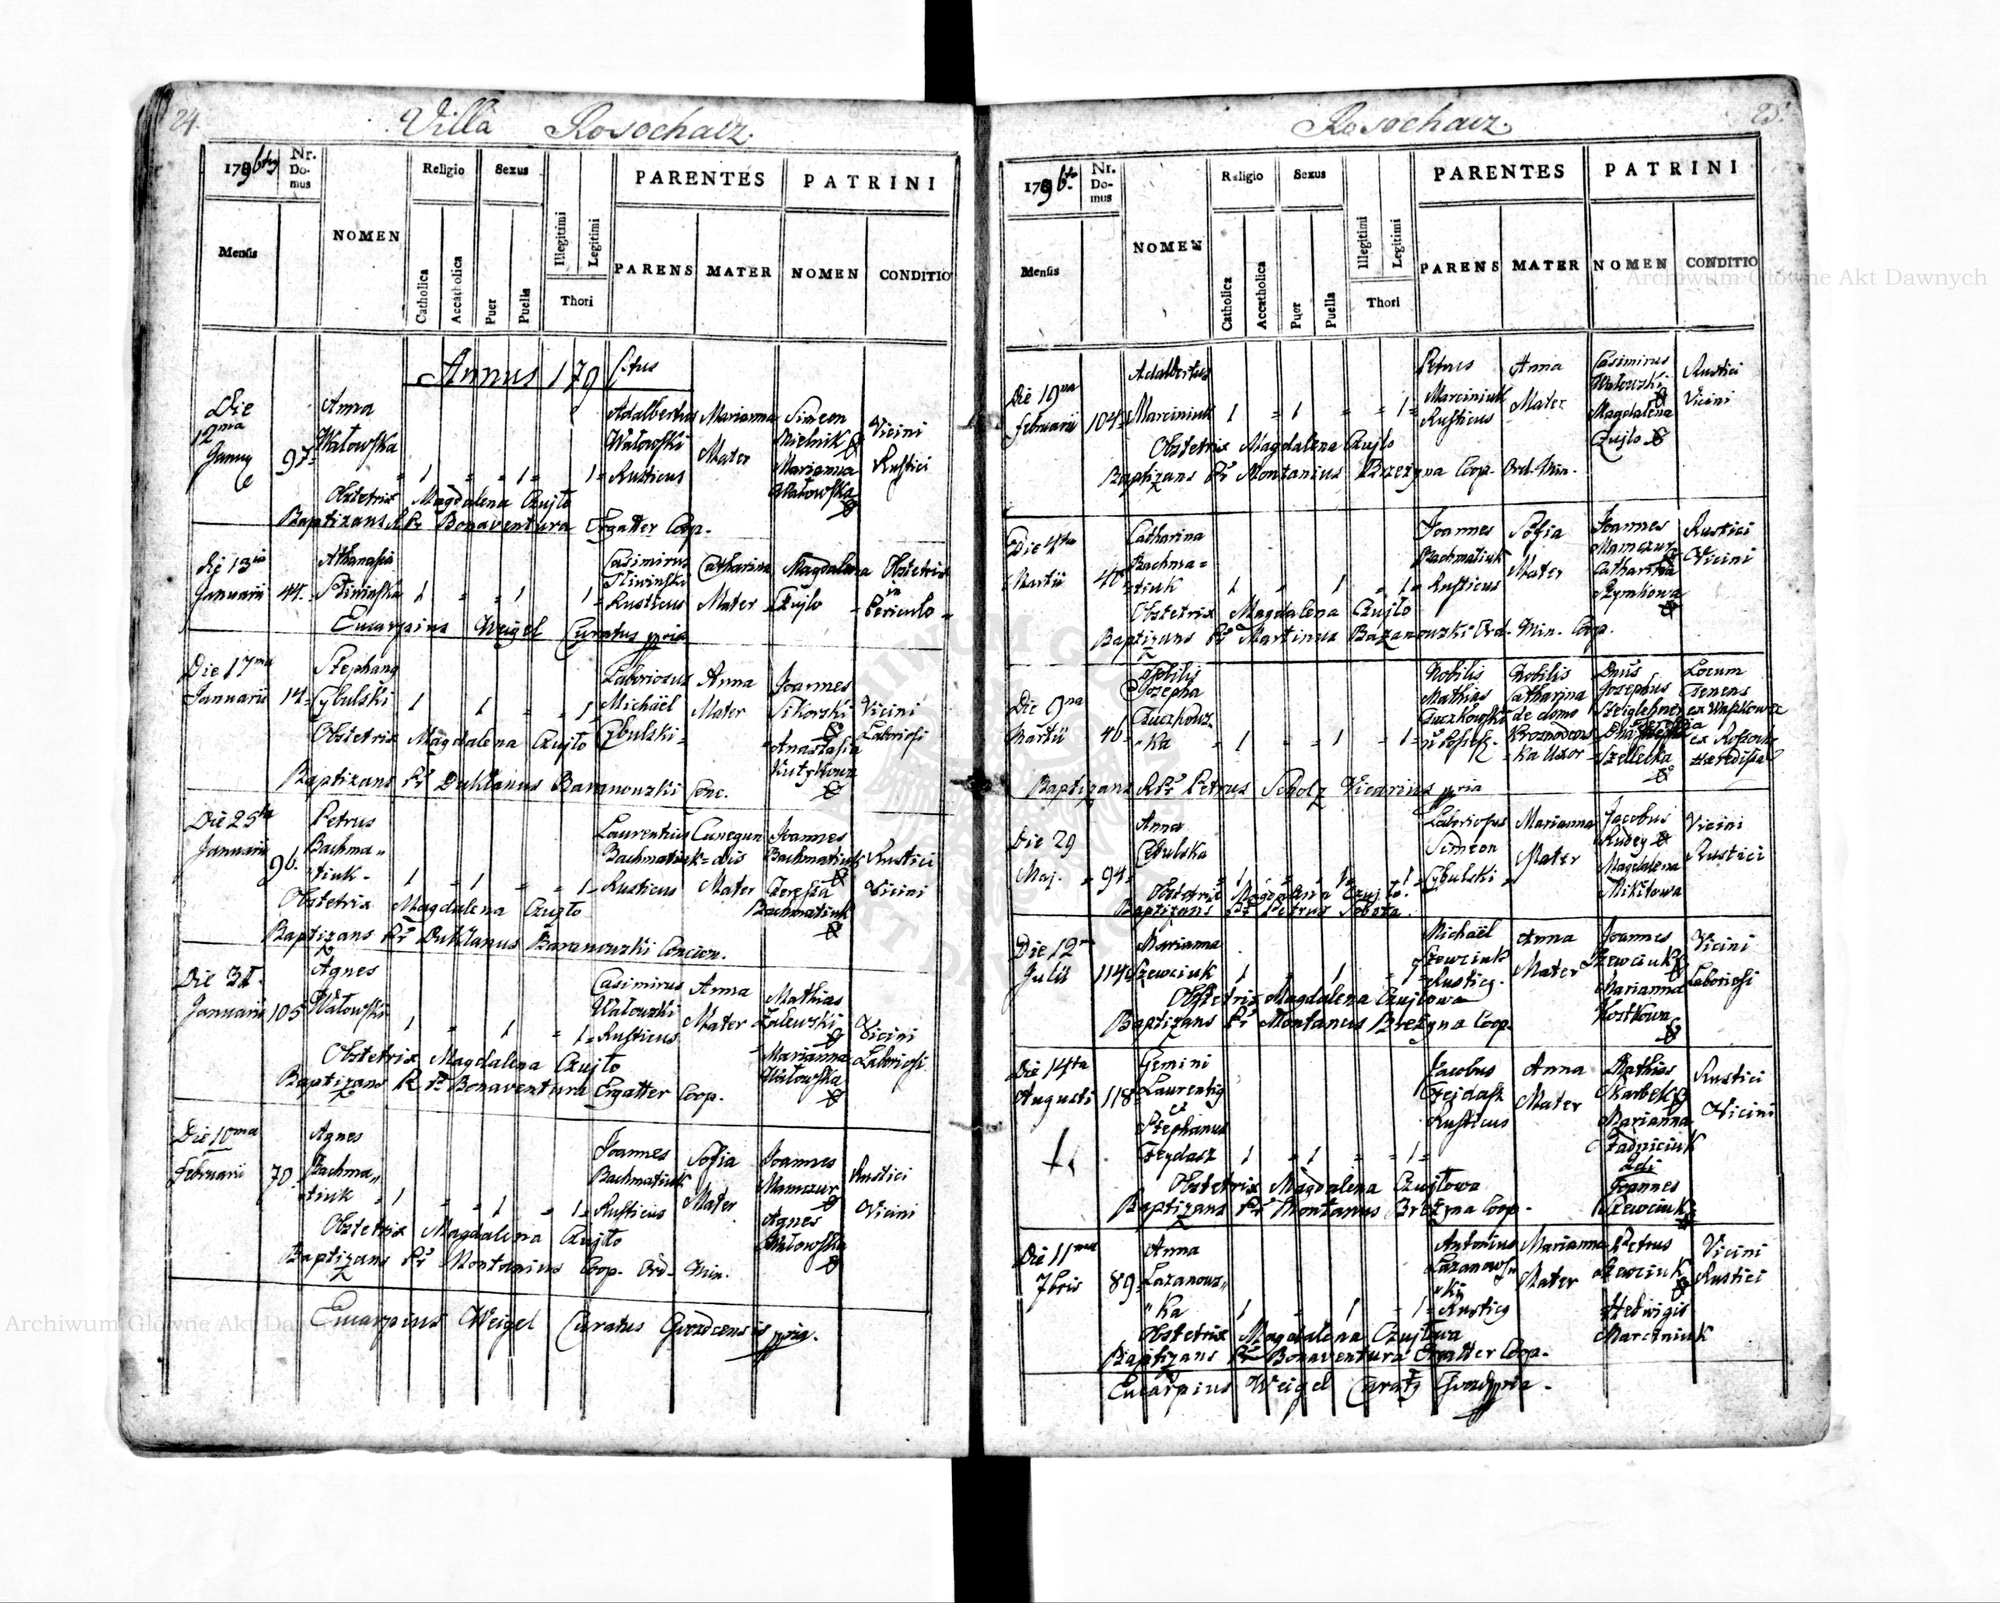 24.
Villa Rosochacz.
1796tus
Nr. Domus
Religio
Sexus
PARENTES
PATRINI
Mensis
NOMEN
Catholica
Accatholica
Puer
Puella
Illegitimi
Legitimi
Thori
PARENS
MATER
NOMEN
CONDITIO
Annus 179
Die 12ma
97
Anna
Wałowska
1
1
1
Adalbertus
Wałowski
Rusticus
Marianna
Mater
Simeon
Mielnik
Marianna
Wałowska
Vicini
Rustici
Obstetrix Magdalena Czujło
Baptizans Bonaventura Ergatter Coop.
Die 13tia
Januarii
44.
Athanasia
1
1
1
Casimirus
Rusticus
Catharina
Mater
Magdalena
Czujlo
Obstetrix
in
Periculo
Eucarpius Weigel Curatus ppria
Die 17ma
Januarii
14
Cybulski
1
1
1
Laboriosus
Michaël
Cybulski
Anna
Mater
Joannes
Sikorski
Anastasia
Vicini
Laboriosi
Obstetrix Magdalena Czujło
Baptizans Pr Duklanus Baranowski Conc.
Die 25ta
Januarii
96.
Petrus
Bachma„
tiuk
1
1
1
Laurentius
Bachmatiuk
Rusticus
Cunegun
dis
Mater
Joannes
Bachmatiuk
Teressia
Bachmatiuk
Rustici
Vicini
Obstetrix Magdalena Czujło
Baptizans Pr Duklanus Baranowski Concion.
Die 31.
Januarii
105
Agnes
Wałowski
1
1
1
Casimirus
Wałowski
Rusticus
Anna
Mater
Mathias
Zalewski
Marianna
Wałowska
Vicini
Laboriosi
Obstetrix Magdalena Czujło
Baptizans R. Pr Bonaventura Ergatter Coop.
Die 10ma
Februarii
70
Agnes
Bachma„
tiuk
1
1
1
Joannes
Bachmatiuk
Rusticus
Sofia
Mater
Joannes
Mamczur
Agnes
Wałowska
Rustici
Vicini
Obstetrix Magdalena Czujło
Baptizans Pr Montanius Coop. Ord. Min.
Eucarpius Weigel Curatus Gvozdcensis ppria.
25.
Rosochacz.
1796to
Nr. Domus
Religio
Sexus
PARENTES
PATRINI
Mensis
NOMEN
Catholica
Accatholica
Puer
Puella
Illegitimi
Legitimi
Thori
PARENS
MATER
NOMEN
CONDITIO
Die 19na
Februarii
104
Adalbertus
Marciniuk
1
1
1
Petrus
Marciniuk
Rusticus
Anna
Mater
Casimirus
Wałowski
Magdalena
Czujlo
Rustici
Vicini
Obstetrix Magdalena Czujło
Baptizans Pr Montanius Brzezyna Coop. Ord. Min.
Die 4ta
Martii
40
Catharina
Bachma=
tiuk
1
1
1
Joannes
Bachmatiuk
Rusticus
Sofia
Mater
Joannes
Mamczur
Catharina
Szymkowa
Rustici
Vicini
Obstetrix Magdalena Czujło
Baptizans Pr Martinus Bazanowski Ord. Min. Coop.
Die 9na
Martii
40
Nobilis
Josepha
Czuczkows
ka
1
1
1
Nobilis
Mathias
Czuczkowski
Nobilis
Catharina
de domo
ka Uxor
Dnus
Josephus
Locum
Tenens
Baptizans R.Pr Petrus Scholz Vicarius ppria
Die 29
Maj.
94
Anna
Cebulska
1
1
1
Laboriosus
Simeon
Cybulski
Marianna
Mater
Jacobus
Rudey
Magdalena
Mikitowa
Vicini
Rustici
Obstetrix Magdalena Czujło
Baptizans Pr Petrus Sobota
Die 12
Julii
114
Marianna
Szewciuk
1
1
1
Michaël
Szewciuk
Anna
Mater
Joannes
Szewciuk
Marianna
Kostkowa
Vicini
Laboriosi
Obstetrix Magdalena Czujłowa
Baptizans Pr Montanus Brezyna Coop.
Die 14ta
Augusti
118
Gemini
Laurentig
et
Stephanus
Feydasz
1
1
1
Jacobus
Fejdasz
Rusticus
Anna
Mater
Mathias
Skarbek
Marianna
Zadniciuk
2di
Joannes
Szewciuk
Rustici
Vicini
Obstetrix Magdalena Czujłowa
Baptizans Pr Montanus Brezyna Coop.
Die 11ma
7bris
89
Anna
Lazanows„
„ka
1
1
1
Antonius
Lazanows„
„ki
Marianna
Mater
Petrus
Szewciuk
Hedwigis
Marciniuk
Vicini
Rustici
Obstetrix Magdalena Czujłowa
Baptizans Pr Bonaventura Ergatter Coop.
Eucarpius Weigel
Archiwum Główne Akt Dawnych
Archiwum Główne Akt Dawnych